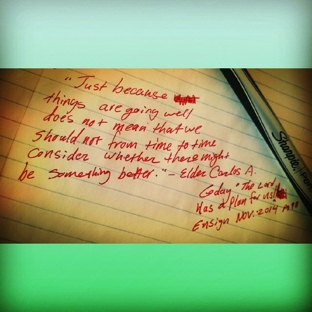 "Just because
things are going well
does not mean that we
should not from time to time
Consider whether there might
be something better." - Elder Carlos A.
Goday "The Lord
Has a Plan for us!
Ensign NOV. 2014
Sharpie